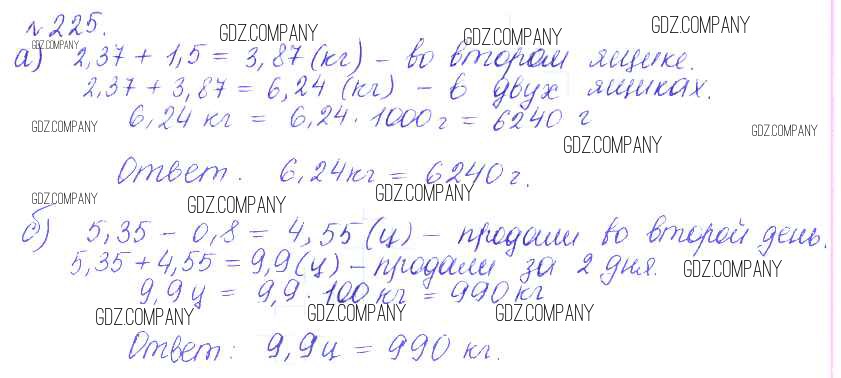 №225. GDZ.COMPANY GDZ.COMPANY GDZ.COMPANY
GDZ.COMPANY
а) 2,37 + 1,5 = 3,87 (кг) – во втором ящике.
2,37 + 3,87 = 6,24 (кг) – в двух ящиках.
6,24 кг = 6,24 · 1000 г = 6240 г
GDZ.COMPANY GDZ.COMPANY GDZ.COMPANY
Ответ. 6,24 кг = 6240 г.
GDZ.COMPANY GDZ.COMPANY GDZ.COMPANY
б) 5,35 – 0,8 = 4,55 (ц) – продали во второй день.
5,35 + 4,55 = 9,9 (ц) – продали за 2 дня. GDZ.COMPANY
9,9 ц = 9,9 · 100 кг = 990 кг
GDZ.COMPANY GDZ.COMPANY GDZ.COMPANY
Ответ: 9,9 ц = 990 кг.